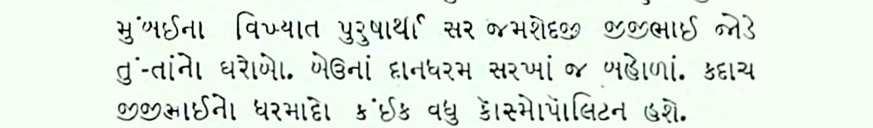 મુંબઈના વિખ્યાત પુરુષાર્થી સર જમશેદજી જીજીભાઈ જોડે
તું-તાંનો ઘરોબો. બેઉનાં દાનધરમ સરખાં જ બહોળાં. કદાચ
જીજીભાઈનો ધરમાદો કંઈક વધુ કૉસ્મોપૉલિટન હશે.